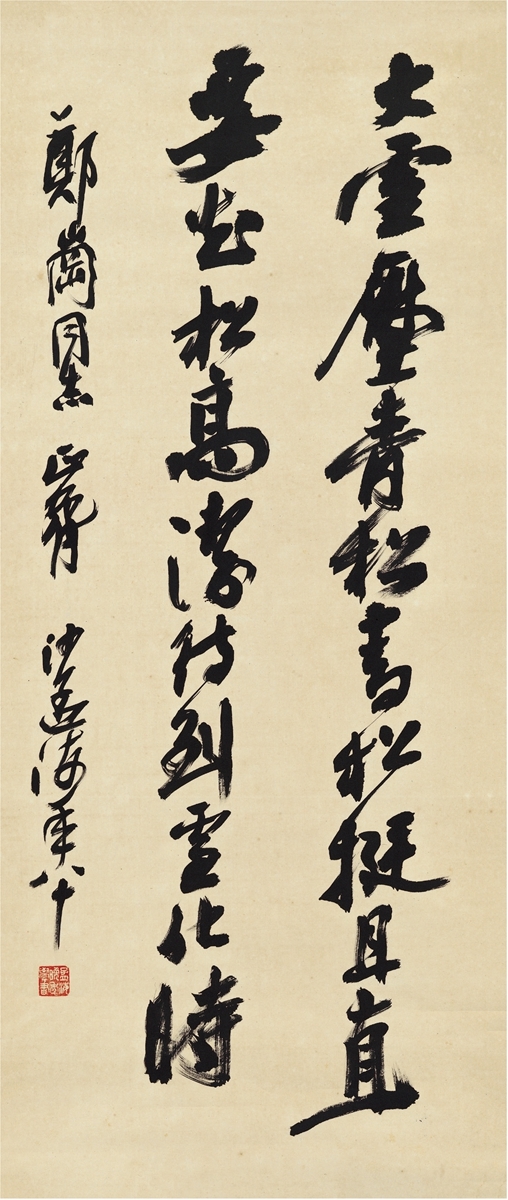 大雪壓青松青松挺且直
要知松高潔待到雪化時
鄭崗同志 正 沙孟海年八十